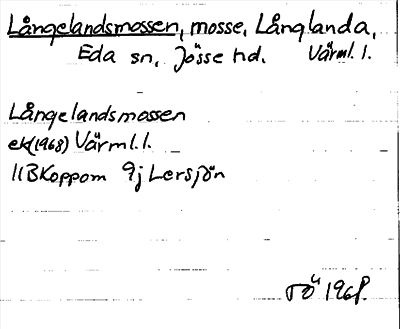 Långelandsmossen, mosse, Långlanda,
Eda sn, Jösse hd. Värml. l.
Långelandsmossen
ek(1968) Värml.l.
11BKoppom 9j Lersjön
TÖ 1968.